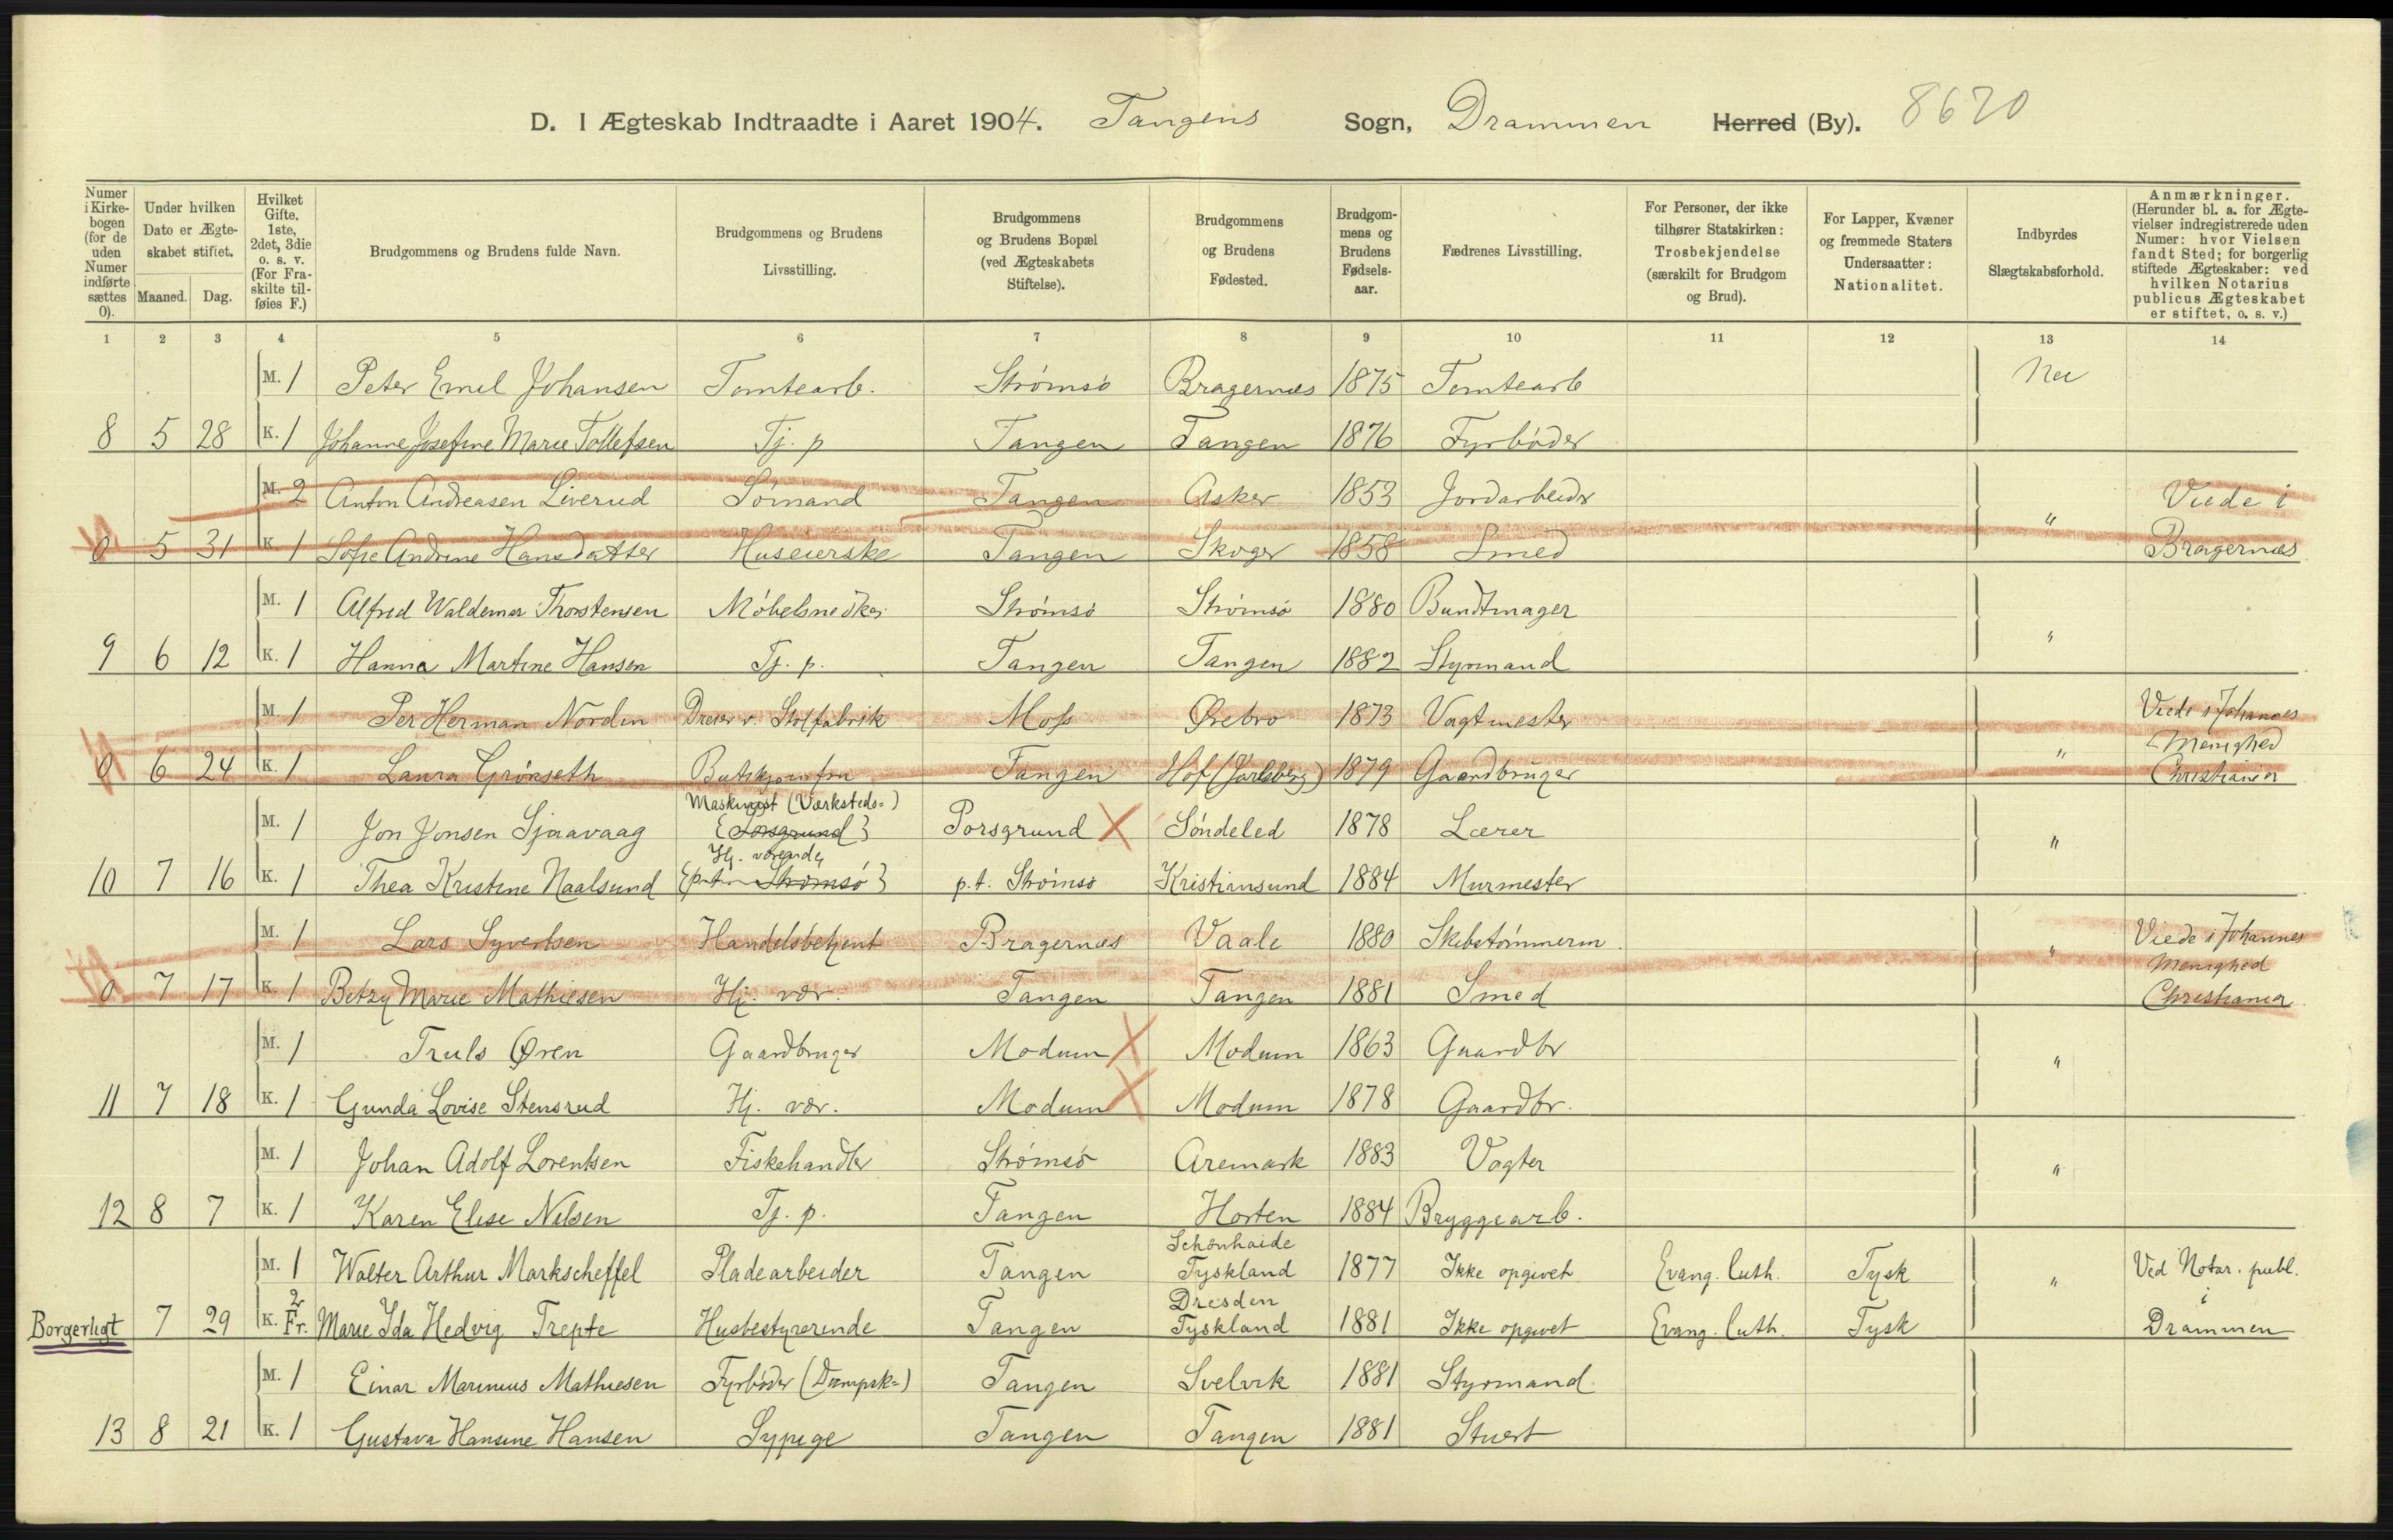 D. I Ægteskab Indtraadte i Aaret 1904. Tangens Sogn, Drammen Herred (By). 8620
Numer i Kirke-bogen (for de uden Numer indførte sættes 0).
Under hvilken Dato er Ægte-skabet stiftet.
Maaned. Dag.
Hvilket Gifte. 1ste, 2det, 3die o. s. v. (For Fra-skilte til-føies F.)
Brudgommens og Brudens fulde Navn.
Brudgommens og Brudens Livsstilling.
Brudgommens og Brudens Bopæl (ved Ægteskabets Stiftelse).
Brudgommens og Brudens Fødested.
Brudgom-mens og Brudens Fødsels-aar.
Fædrenes Livsstilling.
For Personer, der ikke tilhører Statskirken: Trosbekjendelse (særskilt for Brudgom og Brud).
For Lapper, Kvæner og fremmede Staters Undersaatter: Nationalitet.
Indbyrdes Slægtskabsforhold.
Anmærkninger. (Herunder bl. a. for Ægte-vielser indregistrerede uden Numer: hvor Vielsen fandt Sted; for borgerlig stiftede Ægteskaber: ved hvilken Notarius publicus Ægteskabet er stiftet, o. s. v.)
1 2 3 4 5 6 7 8 9 10 11 12 13 14
M. 1 Peter Emil Johansen Tomtearb. Strømsø Bragernæs 1875 Tomtearb Nei
8 5 28 K. 1 Johanne Josefine Marie Tollefsen Tj. p Tangen Tangen 1876 Fyrbøder
M. 2 Anton Andreasen Liverud Sømand Tangen Asker 1853 Jordarbeider " Viede i
0 5 31 K. 1 Sofie Andrine Hansdatter Huseierske Tangen Skoger 1858 Smed Bragernæs
M. 1 Alfred Waldemar Thorstensen Møbelsnedker Strømsø Strømsø 1880 Bundtmager "
9 6 12 K. 1 Hanna Martine Hansen Tj. p. Tangen Tangen 1882 Styrmand
M. 1 Per Herman Nordin Dreier v. Stolfabrik Moss Ørebro 1873 Vagtmester " Viede i Johannes
0 6 24 K. 1 Laura Grønseth Tangen Hof (Jarlsberg) 1879 Gaardbruger Menighed Christiania
M. 1 Jon Jonsen Sjaavaag Maskinist (Værksteds=) {Porsgrund} Porsgrund X Søndeled 1878 Lærer "
10 7 16 K. 1 Thea Kristine Naalsund Hj. værende {p.t. Strømsø} p.t. Strømsø Kristiansund 1884 Murmester
M. 1 Lars Syvertsen Handelsbetjent Bragernæs Vaale 1880 Skibstømmerm. " Viede i Johannes
0 7 17 K. 1 Betzy Marie Mathiesen Hj. vær. Tangen Tangen 1881 Smed Menighed Christiania
M. 1 Truls Øren Gaardbruger Modum X Modum 1863 Gaardbr "
11 7 18 K. 1 Gunda Lovise Stensrud Hj. vær. Modum X Modum 1878 Gaardbr.
M. 1 Johan Adolf Lorentsen Fiskehandler Strømsø Aremark 1883 Vagter "
12 8 7 K. 1 Karen Elise Nilsen Tj. p. Tangen Horten 1884 Bryggearb.
M. 1 Walter Arthur Markscheffel Pladearbeider Tangen Schönhaide Tyskland 1877 Ikke opgivet Evang. luth. Tysk " Ved Notar. publ.
Borgerligt 7 29 K. 2 Fr. Marie Ida Hedvig Trepte Husbestyrerende Tangen Dresden Tyskland 1881 Ikke opgivet Evang. luth. Tysk i Drammen
M. 1 Einar Marinius Mathiesen Fyrbøder (Dampsk=) Tangen Svelvik 1881 Styrmand
13 8 21 K. 1 Gustava Hansine Hansen Sypige Tangen Tangen 1881 Stuert